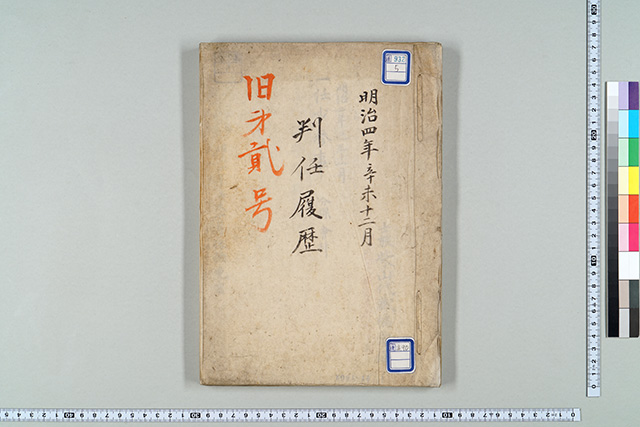 明治四年辛未十二月
判任履歴
旧才貳号
5